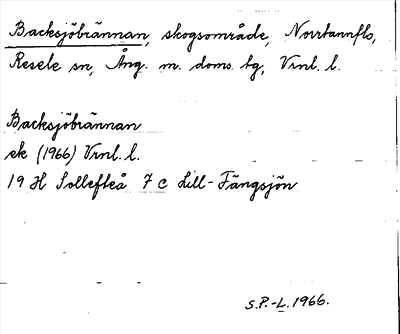 Backsjöbrännan, skogsområde, Norrtannflo,
Resele sn, Ång. m. doms. bg, Vrnl. l.
Backsjöbrännan
ek (1966) Vrnl. l.
19 H Sollefteå 7 c Lill-Fängsjön
S.P.-L. 1966.